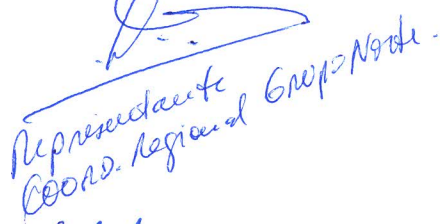 Representante
COORD. Regional Grupo Norte.